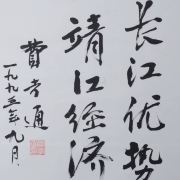 长江优势
靖江经济
费孝通
一九九三年九月